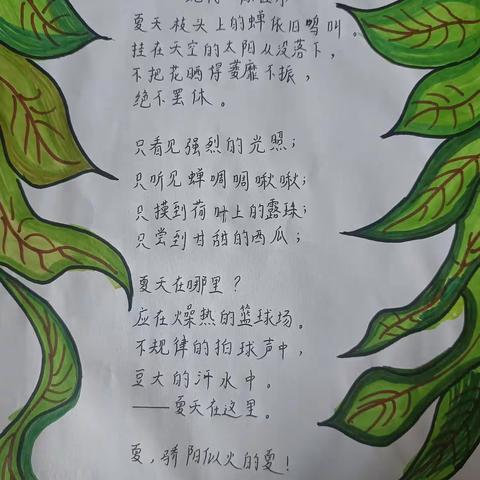 夏天枝头上的蝉依旧鸣叫。
挂在天空的太阳从没落下，
不把花晒得萎靡不振，
绝不罢休。
只看见强烈的光照；
只听见蝉啁啁啾啾；
只摸到荷叶上的露珠；
只尝到甘甜的西瓜；
夏天在哪里？
应在燥热的篮球场。
不规律的拍球声中，
豆大的汗水中。
——夏天在这里。
夏，骄阳似火的夏！